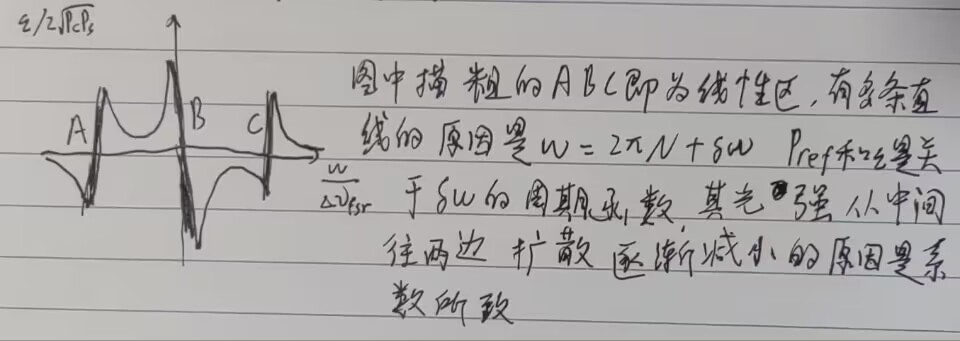 ε/2√PcPs
A
B
C
w/Δνfsr
图中描粗的ABC即为线性区,有多条直
线的原因是w=2πN+δw Pref和ε是关
于δw的周期函数,其光强从中间
往两边扩散逐渐减小的原因是系
数所致